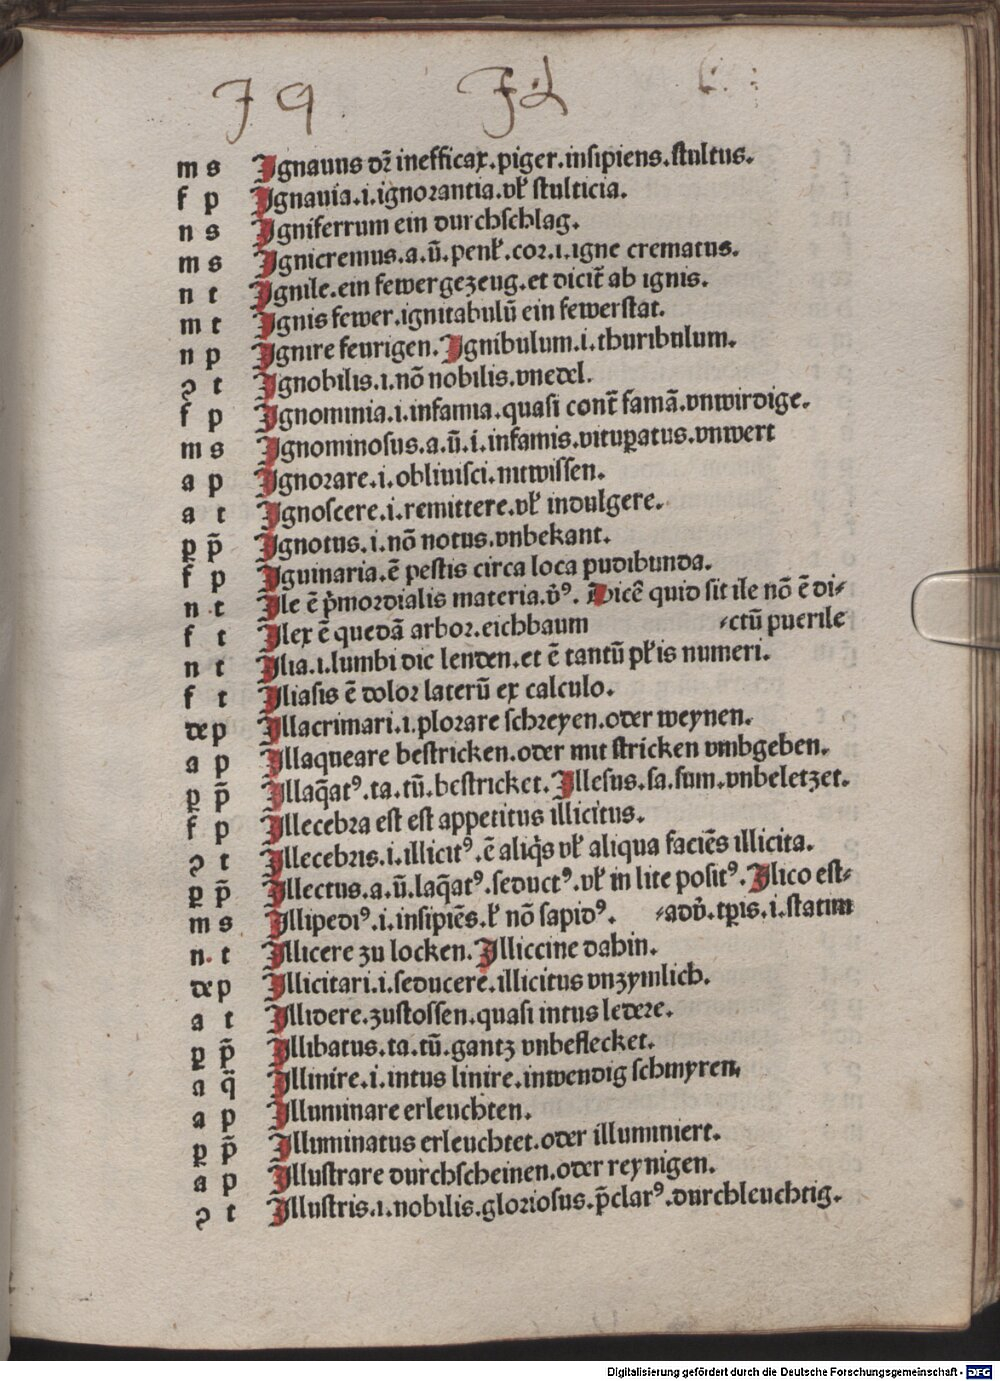 m s Ignauus dr̄ inefficax.piger.insipiens.stultus.
f p Ignauia.i.ignorantia.vl̕ stulticia.
n s Igniferrum ein durchschlag.
m s Ignicremus.a.ū.penl̕.cor.i.igne crematus.
n t Ignile.ein fewergezeug.et dicit̄ ab ignis.
m t Ignis fewer.ignitabulū ein fewerstat.
n p Ignire feurigen.Ignibulum.i.thuribulum.
ꝯ t Ignobilis.i.nō nobilis.vnedel.
f p Ignominia.i.infamia.quasi cont̄ famā.vnwirdige.
m s Ignominosus.a.ū.i.infamis.vituꝑatus.vnwert
a p Ignorare.i.obliuisci.nitwissen.
a t Ignoscere.i.remittere.vl̕ indulgere.
ꝑ p̄ Ignotus.i.nō notus.vnbekant.
f p Iguinaria.ē pestis circa loca pudibunda.
n t Ile ē p̄mordialis materia.v̓ꝰ. Dicē quid sit ile nō ē di⸗
f t Ilex ē quedā arbor.eichbaum ⸗ctū puerile
n t Ilia.i.lumbi dic lenden.et ē tantū pl̕is numeri.
f t Iliasis ē dolor laterū ex calculo.
de p Illacrimari.i.plorare schreyen.oder weynen.
a p Illaqueare bestricken.oder mit stricken vmbgeben.
ꝑ p̄ Illaq̄atꝰ.ta.tū.bestricket.Illesus.sa.sum.vnbeletzet.
f p Illecebra est est appetitus illicitus.
ꝯ t Illecebris.i.illicitꝰ.ē aliq̓s vl̕ aliqua faciēs illicita.
ꝑ p̄ Illectus.a.ū.laq̄atꝰ.seductꝰ.vl̕ in lite positꝰ.Ilico est⸗
m s Illipediꝰ.i.insipiēs.l̕ nō sapidꝰ. ⸗adv̓.tꝑis.i.statim
n.t Illicere zu locken.Illiccine dahin.
de p Illicitari.i.seducere.illicitus vnzymlich.
a t Illidere.zustossen.quasi intus ledere.
ꝑ p̄ Illibatus.ta.tū.gantz vnbeflecket.
a q̄ Illinire.i.intus linire.inwendig schmyren.
a p Illuminare erleuchten.
ꝑ p̄ Illuminatus erleuchtet.oder illuminiert.
a p Illustrare durchscheinen.oder reynigen.
ꝯ t Illustris.i.nobilis.gloriosus.p̄clarꝰ.durchleuchtig.
Digitalisierung gefördert durch die Deutsche Forschungsgemeinschaft - DFG